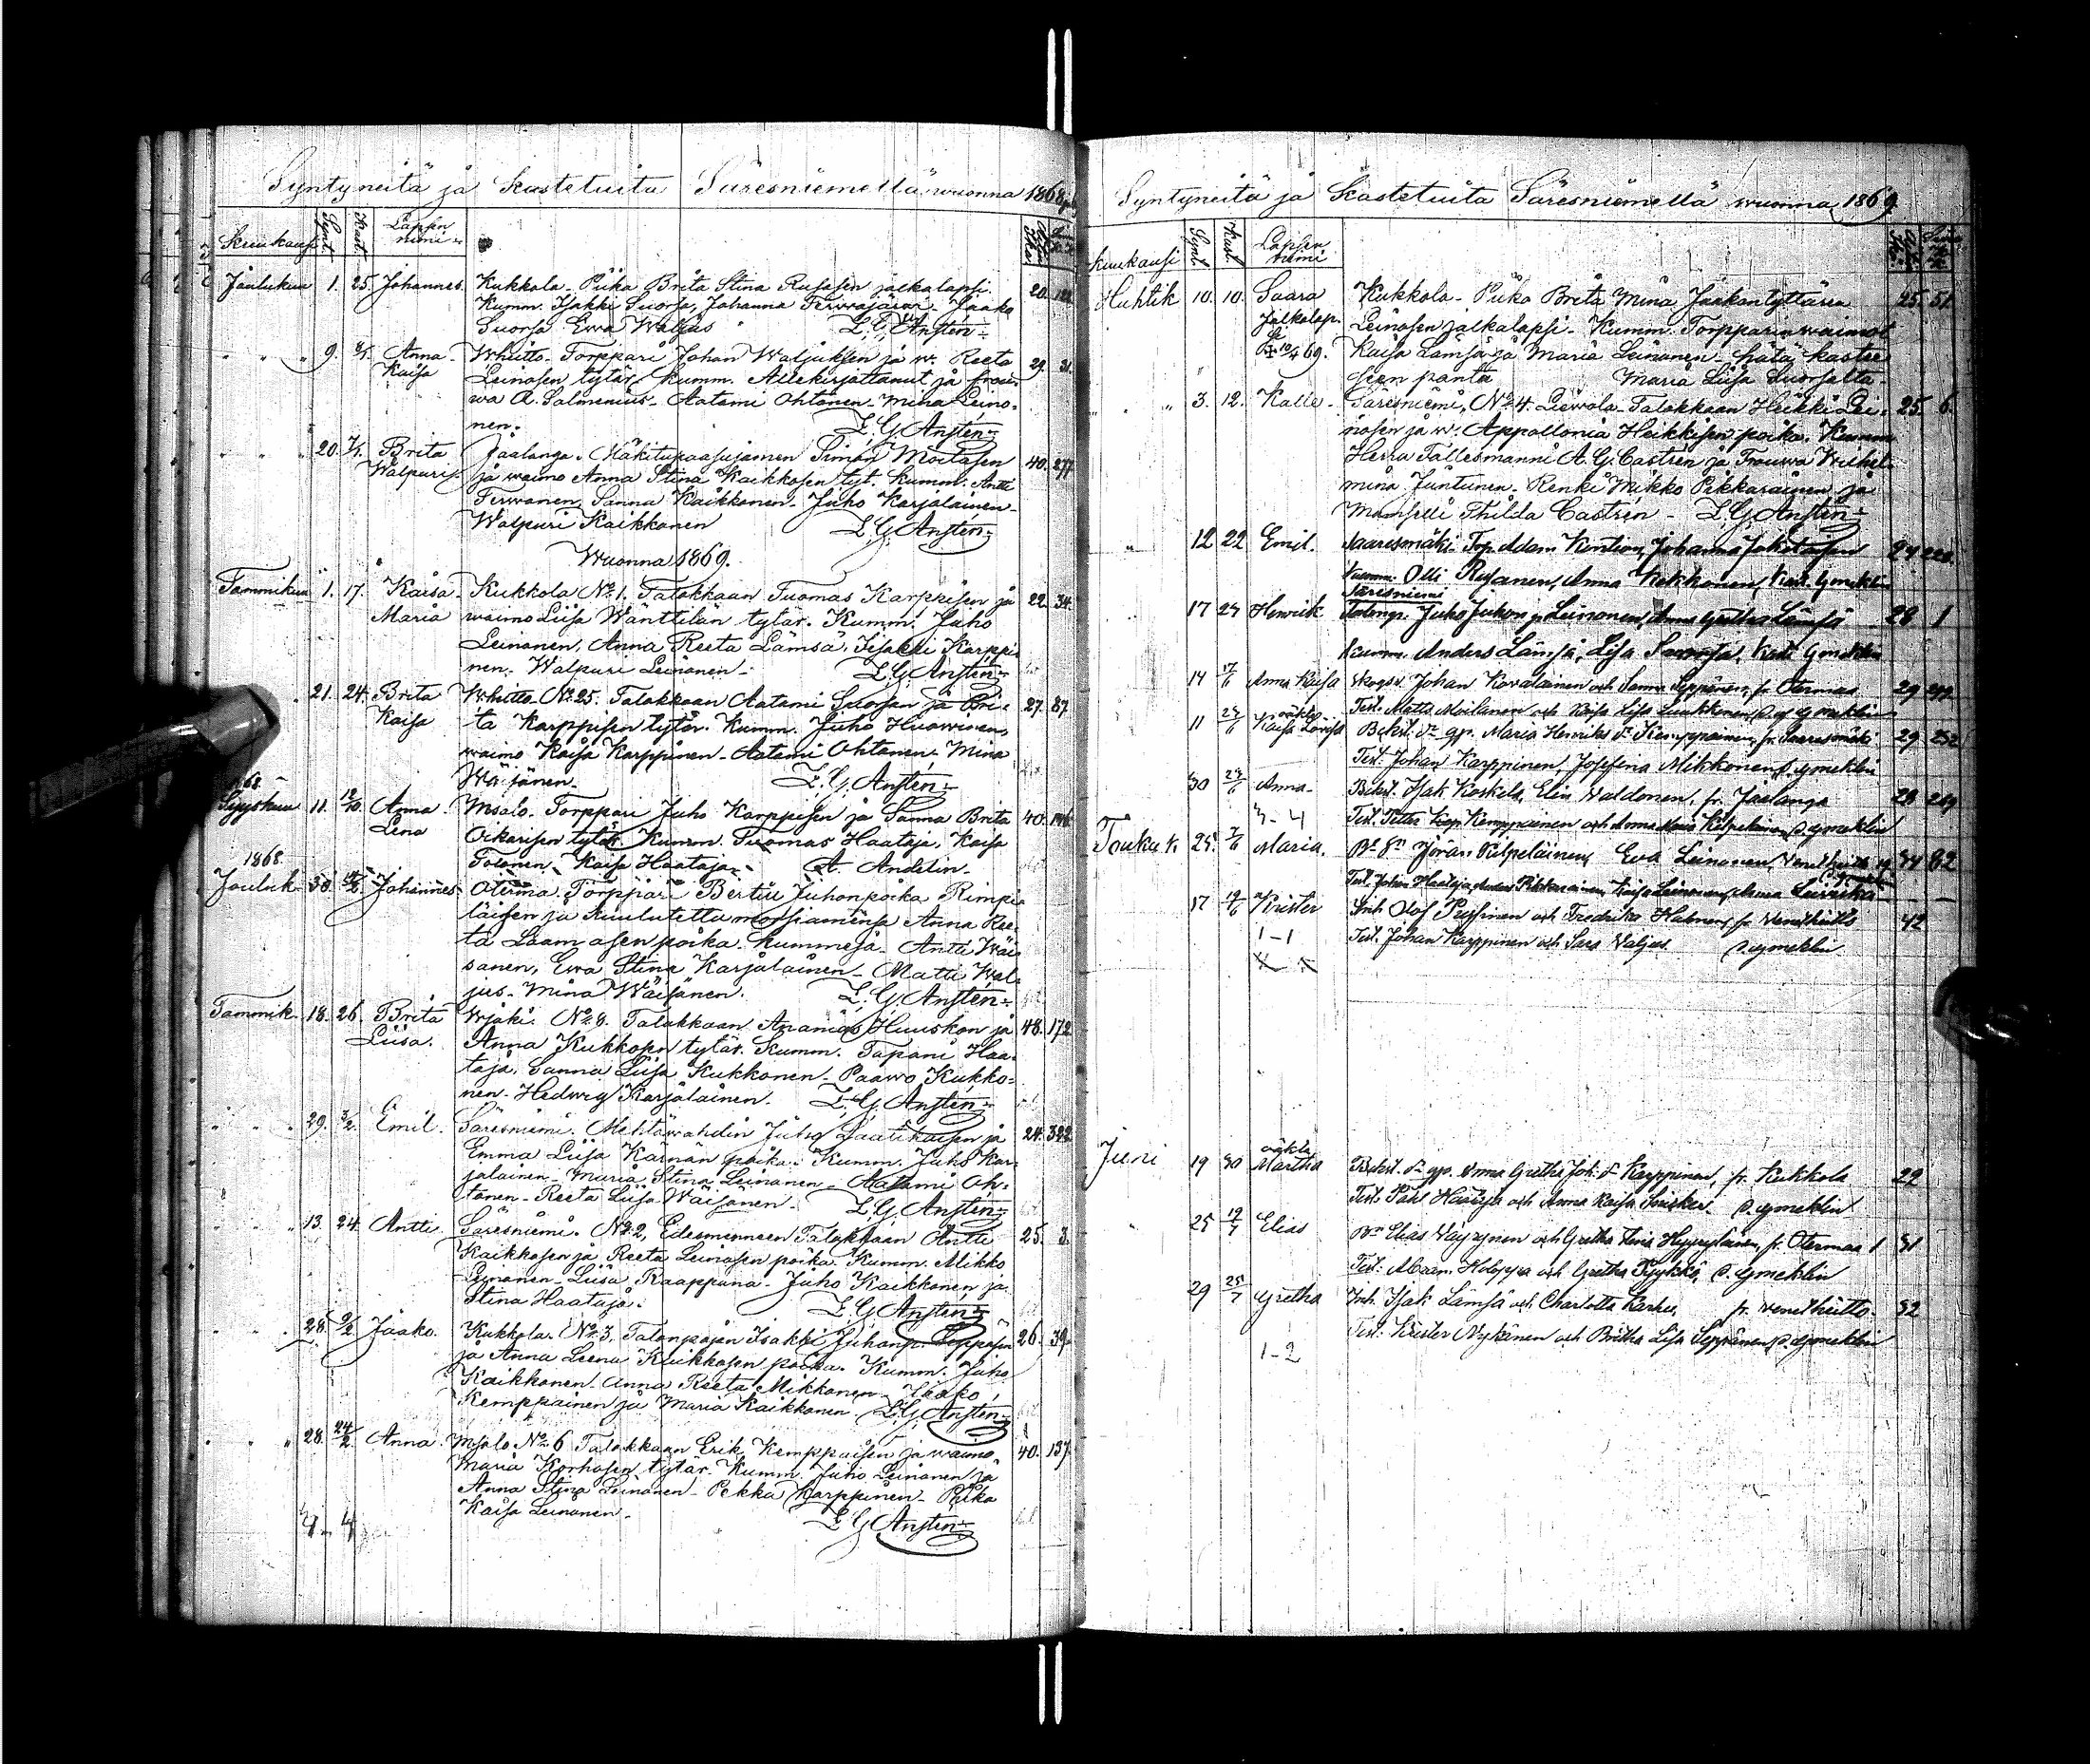 Syntyneitä ja Kastetuita Säresniemellä wuonna 1868
Kuukausi Synt. Kast. Lapsen nimi
Joulukuu 1. 25. Johannes. Kukkola. Piika Brita Stina Rusasen jalkalapsi. 20.
Kumm. Isakki Suorsa, Johanna Terwajärwi. Jaako
Suorsa Ewa Waljus L. G. Ansten
" " 9. 3/1. Anna Whiitto. Torppari Johan Waljuksen ja w. Reeta 29. 31.
Kaisa Leinosen tytär. Kumm. Allekirjottanut ja frou-
wa A. Salmenius. Aatami Ohtonen. Mina Leino-
nen. L. G. Ansten
" " 20. 7/1. Brita Jaalanga. Mäkitupaasujamen Simon Moilasen 40. 277
Walpuri. ja waimo Anna Stina Kaikkosen tyt. Kumm. Antti
Terwonen, Sanna Kaikkonen. Juho Karjalainen
Walpuri Kaikkonen L. G. Ansten
Wuonna 1869.
Tammikuu 1. 17. Kaisa Kukkola No 1. Talokkaan Tuomas Karppisen ja 22. 34.
Maria waimo Liisa Wänttilän tytär. Kumm. Juho
Leinonen, Anna Reeta Lämsä, Isakki Karppi-
nen. Walpuri Leinonen. L. G. Ansten
21. 24. Brita Whiitto No 25. Talokkaan Aatami Suorsan ja Bri- 27. 87.
Kaisa ta Karppisen tytär. Kumm. Juho Huowinen
waimo Kaisa Karppinen. Aatami Ohtonen. Mina
Wäisänen. L. G. Ansten
68.
Syyskuu 11. 12/10. Anna Msalo. Torppari Juho Karppisen ja Sanna Brita 40. 146
Lena Oikarisen tytär. Kumm. Tuomas Haataja, Kaisa
Tolonen. Kaisa Haataja. A. Andelin.
1868.
Jouluk. 30. Johannes Oterma. Torppari Bertil Juhonpoika Rimpi-
läisen ja kuulutettu morsiamensa Anna Ree-
ta Laamasen poika. Kummeja. Antti Wäi-
sänen, Ewa Stina Karjalainen. Matti Wal-
jus. Mina Wäisänen. L. G. Ansten
Tammik. 18. 26. Brita Wjoki. No 8. Talokkaan Ananias Huuskon ja 48. 172
Liisa. Anna Kukkosen tytär. Kumm. Tapani Haa-
taja. Sanna Liisa Kukkonen. Paawo Kukko-
nen. Hedwig Karjalainen. L. G. Ansten
" " 29. 3/2. Emil. Säresniemi. Metsäwahdin Juho Lautikaisen ja 24. 322
Emma Liisa Kärnän poika. Kumm. Juho Kar-
jalainen. Maria Stina Leinonen. Aatami Oh-
tonen. Reeta Liisa Wäisänen. L. G. Ansten
" 13. 24. Antti Säresniemi. No 2, Edesminneen Talokkaan Antti 25. 3.
Kaikkosen ja Reeta Leinosen poika. Kumm. Mikko
Leinonen. Liisa Raappana. Juho Kaikkonen ja
Stina Haataja. L. G. Ansten
" 28. 9/2 Jaako. Kukkola. No 3. Talonpojan Isakki Juhonp. Seppäsen 26. 39.
ja Anna Leena Kuikkasen poika. Kumm. Juho
Kaikkonen. Anna Reeta Mikkonen. Jaako
Kemppainen ja Maria Kaikkonen. L. G. Ansten
" " 28. 24/2. Anna. Msalo No 6 Talokkaan Erik Kemppaisen ja waimo 40. 137.
Maria Korhosen tytär. Kumm. Juho Leinonen ja
Anna Stina Leinonen. Pekka Karppinen. Piika
Kaisa Leinonen. L. G. Ansten
4-4
Syntyneitä ja Kastetuita Säresniemellä wuonna 1869
Kuukausi Synt. Kast. Lapsen nimi
Huhtik 10. 10. Saara Kukkola. Piika Breta Mina Jaakontyttären 25. 51.
Jalkalap. Leinosen jalkalapsi. Kumm. Torpparin waimot
10/4 69. Kaisa Lämsä ja Maria Leinonen. hätä kastee-
seen pantu Maria Liisa Suorsalta.
" " 3. 12. Kalle. Säresniemi, No 4. Liewola. Talokkaan Heikki Lei- 25. 6.
nosen ja w. Appollonia Heikkisen poika. Kumm.
Herra Fallesmanni A. G. Castren ja Frouwa Wilhel-
mina Juntunen. Renki Mikko Pikkarainen ja
Mamselli Thilda Castren. L. G. Ansten
" 12 22 Emil. Saaresmäki. Torp. Adam Kention, Johanna
Kumm. Olli Rusanen, Anna Kekkonen, Kast. Gmeklin
Säresniemi
17 27 Henrik Talonp. Juho Juhonp. Leinonen, Anna Gretha Lämsä 28 1
Kumm. Anders Lämsä, Lisa Suorsa, Kast. Gmeklin
14 17/6 Anna Kaisa Skogsv. Johan Kovalainen och Sanna Seppänen, fr. Otermas 29
Test. Matts Moilanen och Kaisa Lisa Luukkonen, d. af Gmeklin
11 oäkta Kaisa Lämsä Bekst. dr. qp. Maria Henriks dr Kemppainen, fr. Saaresmäki 29 252
Test. Johan Karppinen, Josefina Mikkonen, d. gmeklin
30 Anna Bekst. Isak Koskelo, Elin Valdonen, fr. Jaalanga 28
3-4 Test. Petter Kemppainen och Anna Maria Kilpeläinen, d. gmeklin
Toukok. 25. 7/6 Maria. Jöran Kilpeläinen, Eva Leinonen, Venetheitto 34 62
Test. Johan Haataja, Anders Pikkarainen, Kaisa Leinonen, Anna
17 Krister Inh. Olof Pussinen och Fredrika Halonen, fr. Venetheitto 42
1-1 Test. Johan Karppinen och Sara Valjus d. gmeklin
Juni 19 30 oäkta Martha Bekst. dr qp. Anna Gretha Joh. dr Karppinen, fr. Kukkola 22
Test. Påhl Haataja och Anna Kaisa d. gmeklin
25 Elias Elias Väyrynen och Gretha Hyyryläinen, fr. Otermas 1 31
Test. Abram Holappa och Gretha Tyykkö, d. gmeklin
29 25/7 Gretha Inh. Isak Lämsä och Charlotta Karhu, fr. Venetheitto. 32
Test. Krister Nykänen och Britha Lisa Seppänen, d. gmeklin
1-2